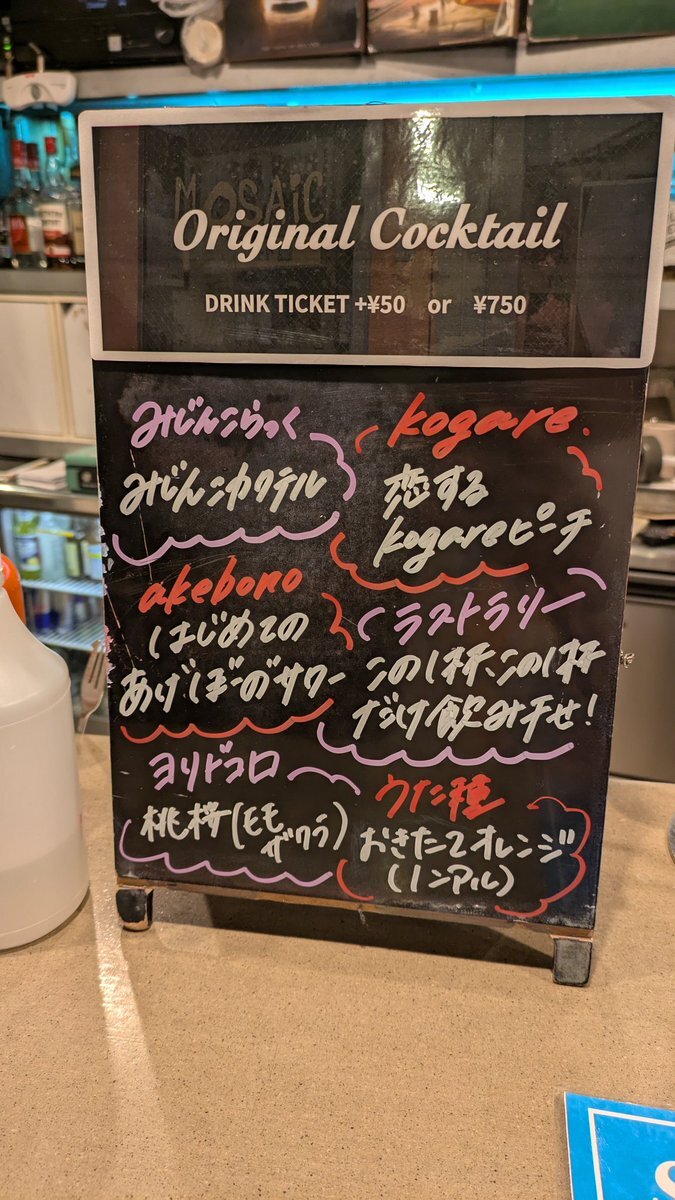 MOSAiC
Original Cocktail
DRINK TICKET +¥50 or ¥750
みじんこらっく
みじんこカクテル
kogare.
恋する
kogareピーチ
akebono
はじめての
あげぼーのサワー
ラストラリー
この1杯この1杯
だけ飲み干せ!
ヨリドコロ
桃桜(もも
ザクラ)
うた種
おきたてオレンジ
(ノンアル)